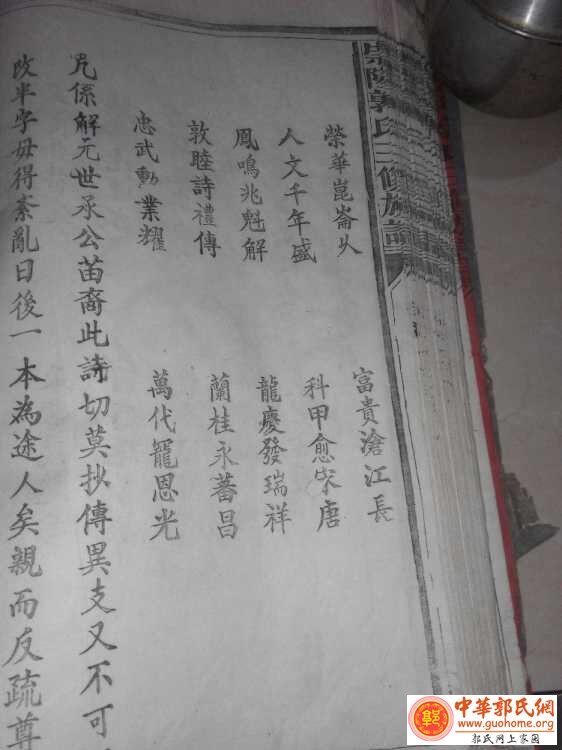 崇陽郭氏三修族譜
榮華崑崙乆 富貴滄江長
人文千年盛 科甲愈宋唐
鳳鳴兆魁解 龍慶發瑞祥
敦睦詩禮傳 蘭桂永蕃昌
忠武勳業耀 萬代寵恩光
凢係解元世承公苗裔此詩切莫抄傳異支又不可
改半字毋得紊亂日後一本為途人矣親而反疏尊
中華郭氏網
www.guohome.org
郭氏网上家园